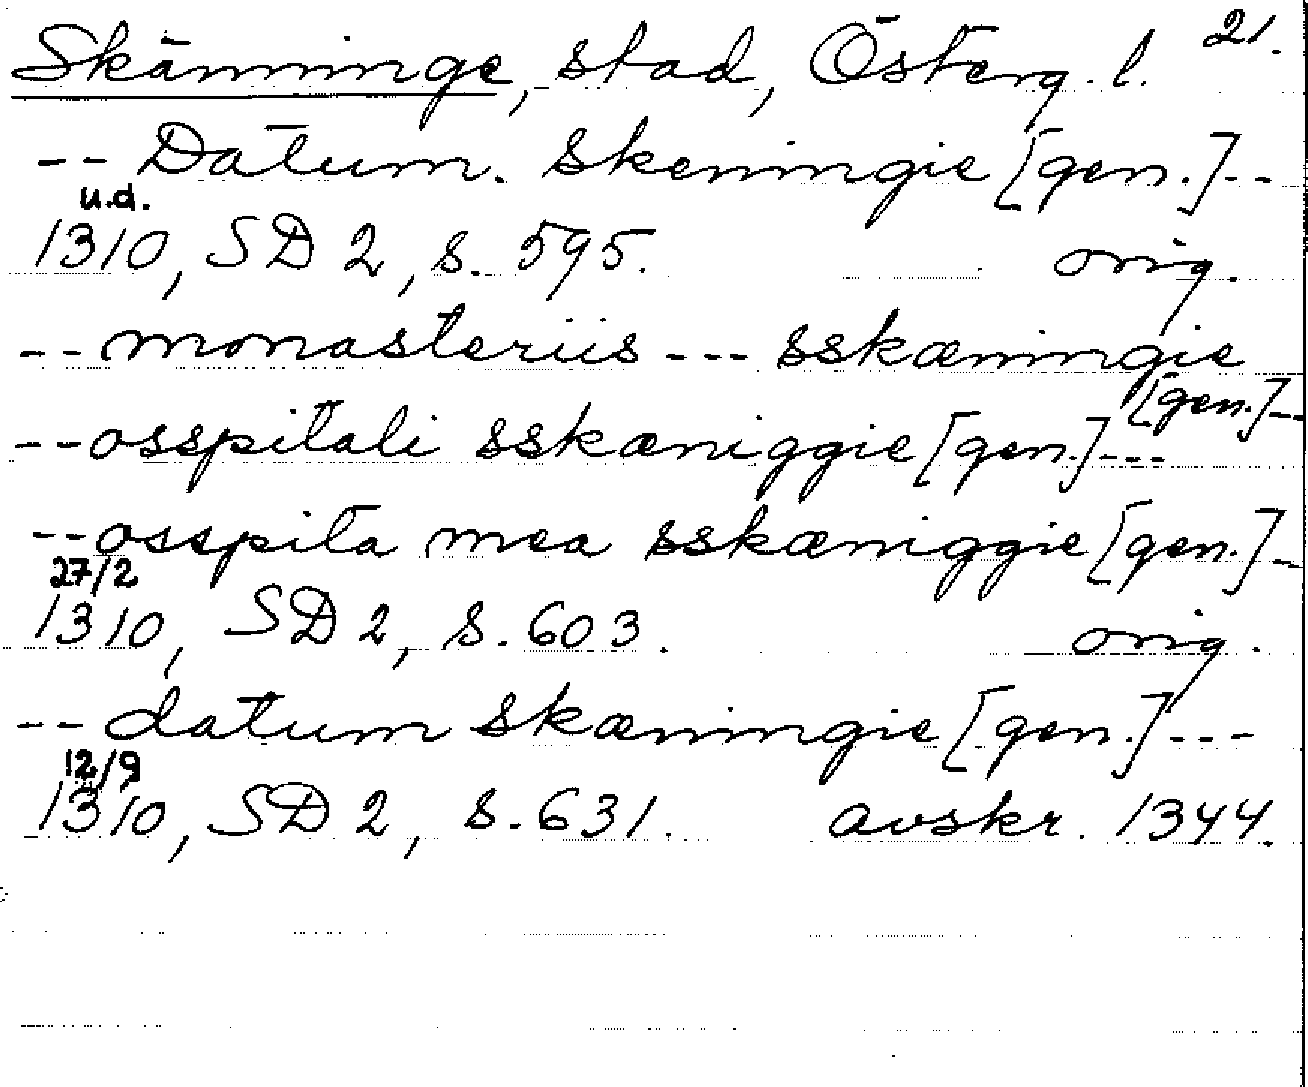 Skänninge, stad, Österg. l. 21.
-- Datum. Skeningie [gen.]--
u.d.
1310, SD 2, s. 595. orig.
-- monasteriis --- sskæningie
[gen.]--
-- osspitali sskæniggie [gen.]---
-- osspita mea sskæniggie [gen.]-
27/2
1310, SD 2, s. 603. orig.
-- datum skæningie [gen.]---
12/9
1310, SD 2, s. 631. avskr. 1344.